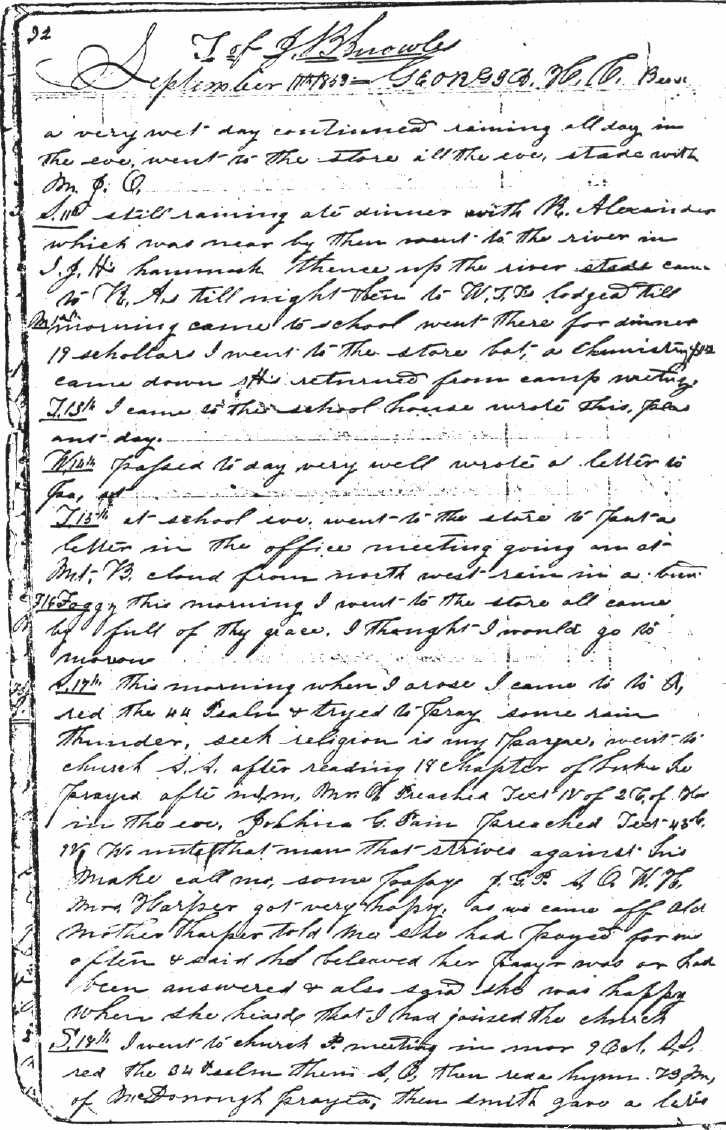 92
J. of J. B. Knowles
September 11th 1859 = GEORGIA. H. C.
a very wet day continued raining all day in
the eve, went to the store all the eve, stade with
M. J. O.
S. 11th still raining ate dinner with R. Alexander
which was near by then went to the river in
I. J. H's hammock thence up the river came
to R. A.s till night then to W. T. Ls lodged till
morning came to school went there for dinner
19 schollars I went to the store bot, a chemistry
came down Hs returned from camp meeting
T. 13th I came to the school house wrote this, plea
ant day.
W 14th passed to day very well wrote a letter to
pa,
T 15th at school eve. went to the store to put a
letter in the office meeting going on at
Mt. B. cloud from north west rain in a
Foggy this morning I went to the store all came
by full of thy grace. I thought I would go to
morow
S. 17th this morning when I arose I came to to
red the 44 Psalm & tryed to pray some rain
thunder, seek religion is my went to
church S. S. after reading 18 Chapter of Luke he
prayed Mr. Preached Text 18 of 26 of
in the eve, Joshua G. Pain preached Text 45 C.
that man that strives against his
make call me, some J. G. P. S. O. W. H.
Mrs. Harper got very happy, as we came off Old
Mother Tharper told me she had prayed for me
often & said she beleaved her prayr was or had
been answered & also said she was happy
when she heard that I had joined the church
S. 18th I went to church P. meeting in mor 9 Ocl. S. S.
red the 34 Psalm then S, O, then red a hymn. 73,
of McDonough prayed, then smith gave a